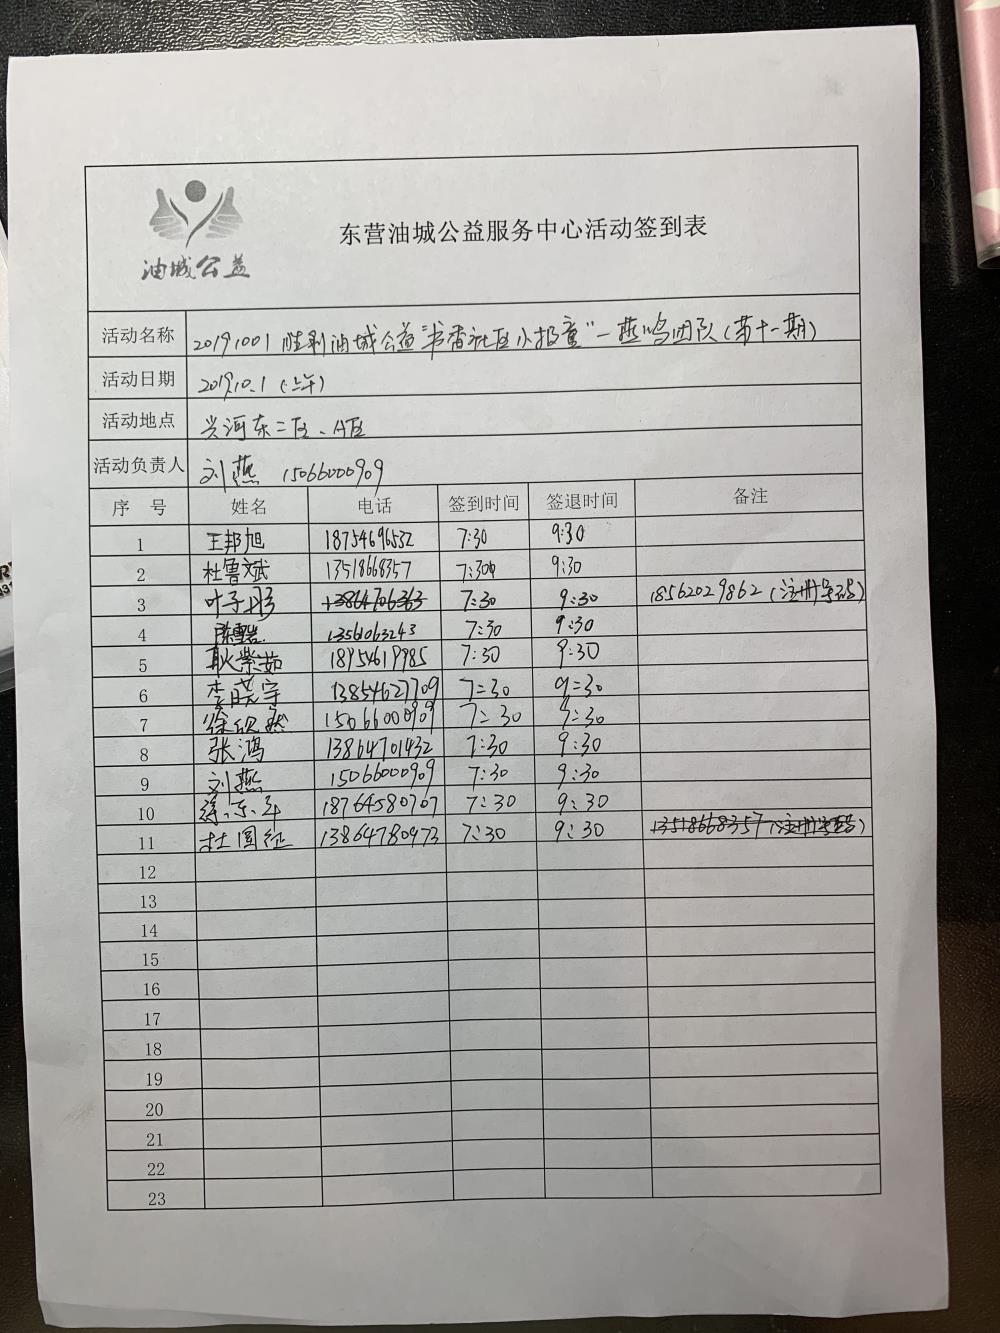 油城公益
东营油城公益服务中心活动签到表
活动名称 20191001胜利油城公益"书香社区小报童"—燕鸣团队(第十一期)
活动日期 2019.10.1 (上午)
活动地点 兴河东二区、A区
活动负责人 刘燕 15066000909
序 号 姓名 电话 签到时间 签退时间 备注
1 王邦旭 18754696532 7:30 9:30
2 杜鲁斌 13518668357 7:30 9:30
3 叶子彤 13864706363 7:30 9:30 18562029862(注册号码)
4 7:30 9:30
5 耿荣茹 18954619985 7:30 9:30
6 李晓宇 13854627709 7:30 9:30
7 徐欣然 15066000909 7:30 9:30
8 张鸿 13864701432 7:30 9:30
9 刘燕 15066000909 7:30 9:30
10 18764580707 7:30 9:30
11 杜圆征 13864780973 7:30 9:30 13518668357(注册号码)
12
13
14
15
16
17
18
19
20
21
22
23